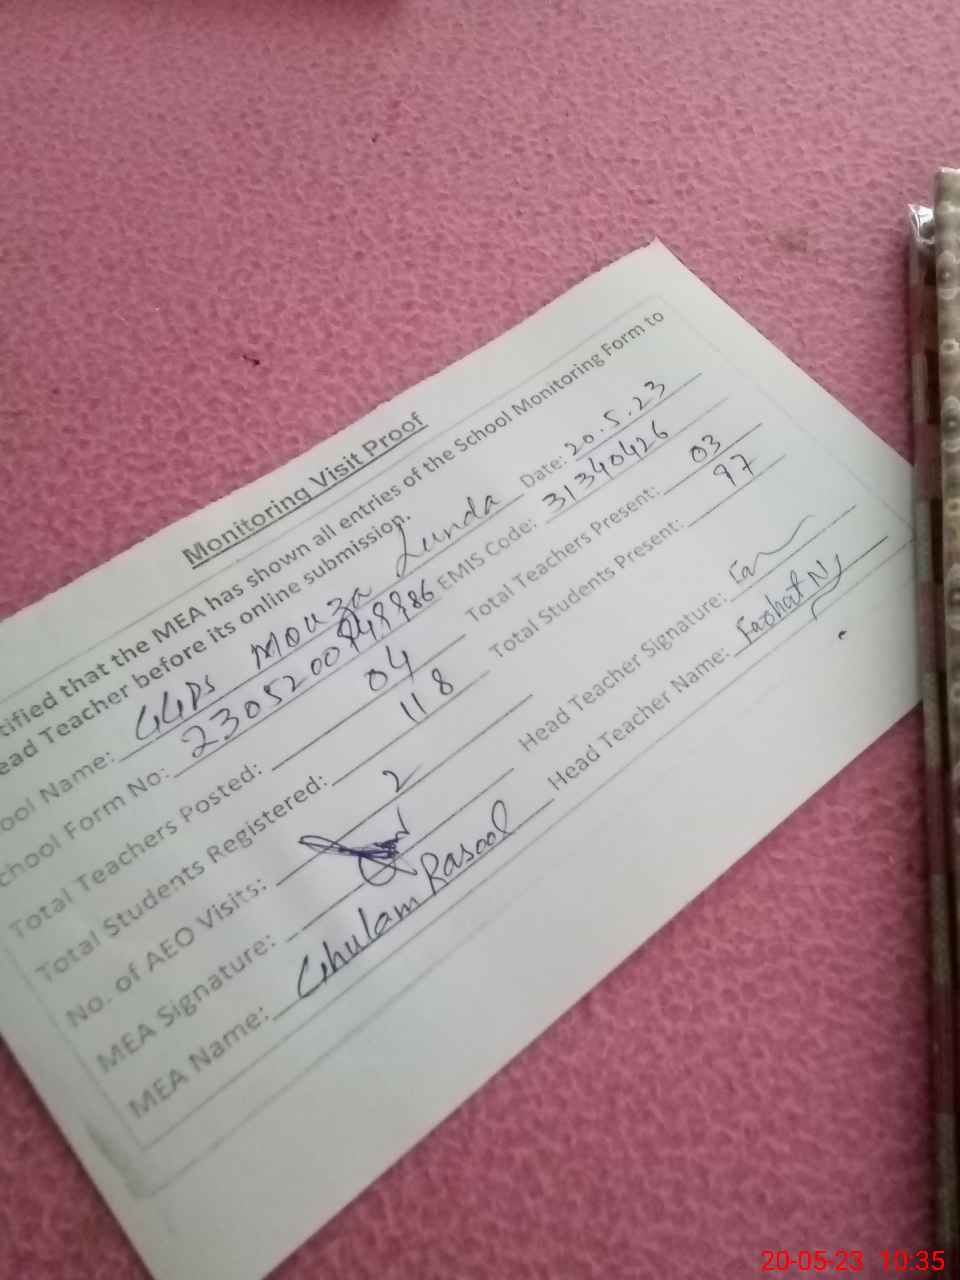 Monitoring Visit Proof
tified that the MEA has shown all entries of the School Monitoring Form to
ead Teacher before its online submission.
ool Name: GGPS Mouza Lunda Date: 20.5.23
chool Form No: EMIS Code: 31340426
Total Teachers Posted: 04 Total Teachers Present: 03
Total Students Registered: 118 Total Students Present: 97
No. of AEO Visits: 2
MEA Signature: Head Teacher Signature:
MEA Name: Ghulam Rasool Head Teacher Name: Farhat
20-05-23 10:35